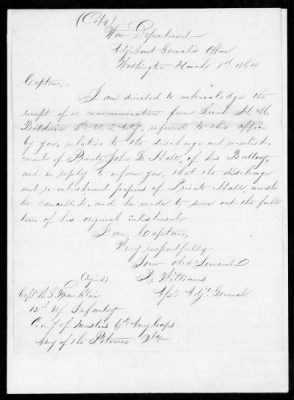 (Copy)
War Department
Adjutant General's Office
Washington March 1st 1864
Captain,
I am directed to acknowledge the
receipt of a communication from Lieut
referred to this office
by you, relative to the discharge and reenlist-
ment of Private John D. Hall, of his Battery,
and in reply to inform you, that the discharge
and re-enlistment papers of Private Hall, must
be cancelled, and he made to serve out the full
term of his original enlistment.
I am, Captain,
Very respectfully
Your obdt Servant
(Signed) Williams
Asst Adjt General
Capt
Infantry
Com'y of Musters 6th Army Corps
Army of the Potomac